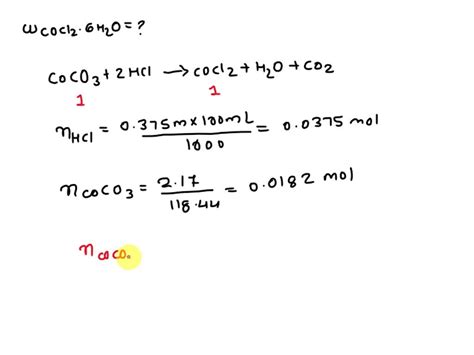 WCOCl2·6H2O = ?
COCO3 + 2HCl → COCl2 + H2O + CO2
1 1
nHCl = 0.375M × 100mL / 1000 = 0.0375 mol
nCOCO3 = 2.17 / 118.44 = 0.0182 mol
nCOCO.